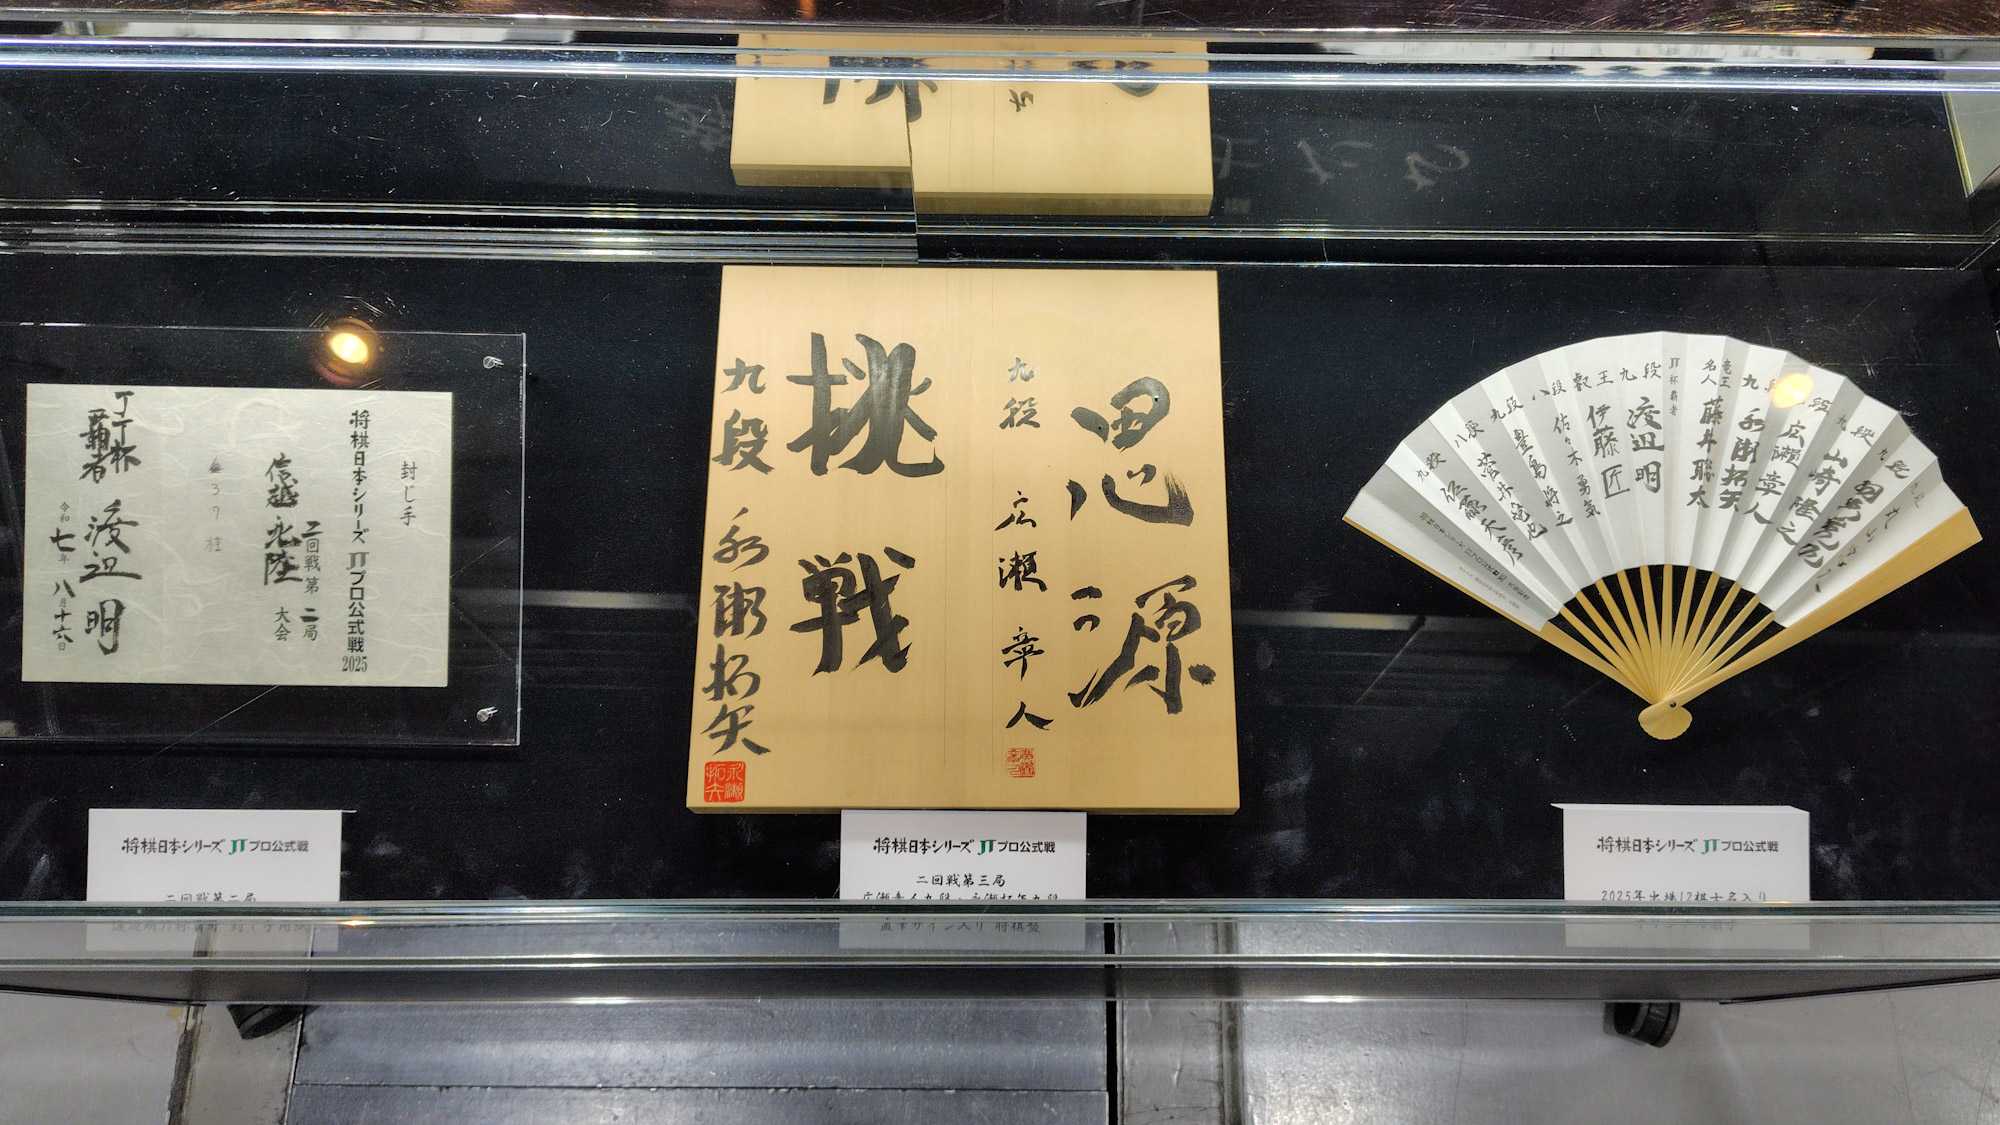 封じ手
将棋日本シリーズ JTプロ公式戦2025
二回戦第二局
信越北陸
大会
3 7 桂
JT杯
覇者
渡辺 明
令和七年八月十六日
将棋日本シリーズ JTプロ公式戦
二回戦第二局
挑戦
九段 永瀬拓矢
九段 広瀬章人
将棋日本シリーズ JTプロ公式戦
二回戦第三局
広瀬章人九段・永瀬拓矢九段
直筆サイン入り 将棋盤
九段 山崎隆之
九段 広瀬章人
九段 永瀬拓矢
竜王
名人 藤井聡太
JT杯覇者
九段 渡辺明
叡王 伊藤匠
八段 佐々木勇気
九段 豊島将之
八段 菅井竜也
九段 佐藤天彦
将棋日本シリーズ JTプロ公式戦
2025年出場12棋士名入り